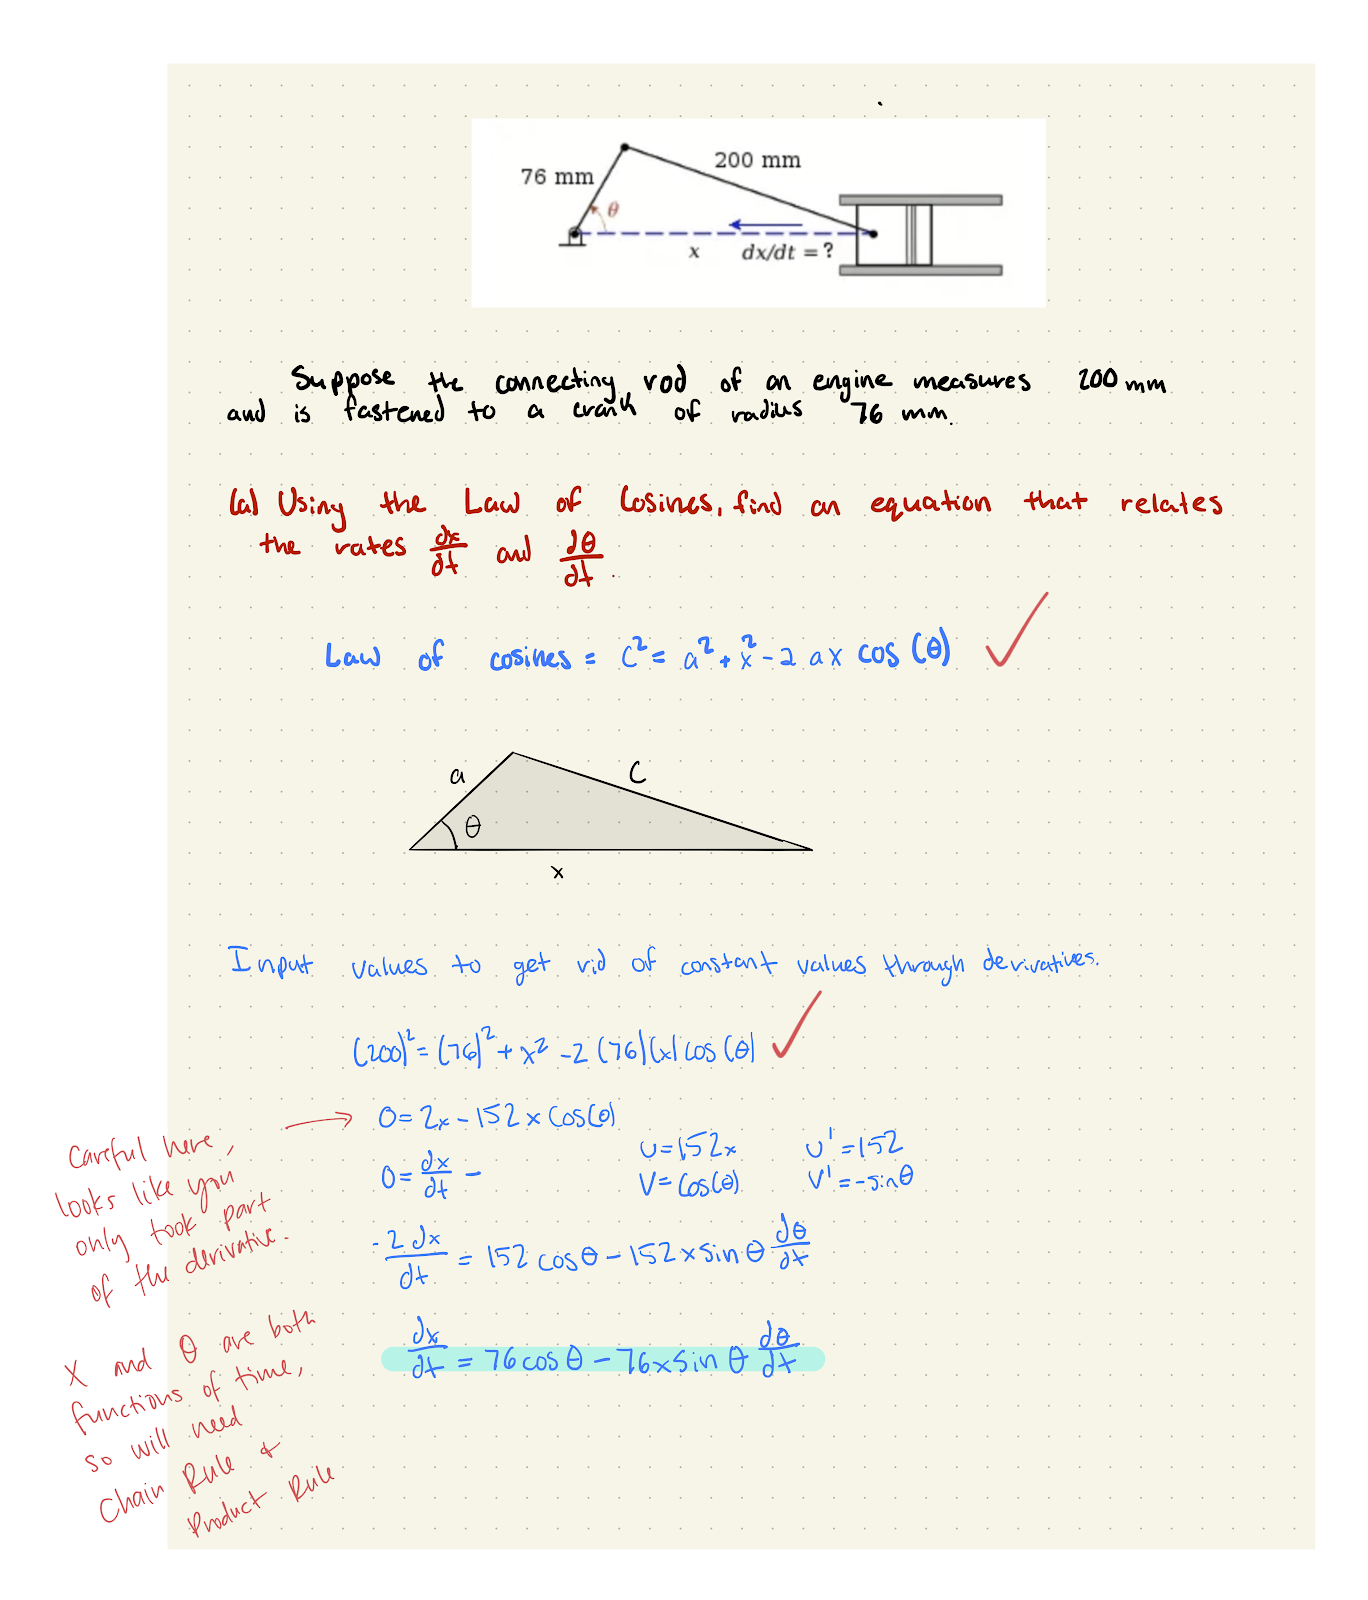 76 mm
200 mm
θ
x
dx/dt = ?
Suppose the connecting rod of an engine measures 200 mm
and is fastened to a crank of radius 76 mm.
(a) Using the Law of Cosines, find an equation that relates
the rates dx/dt and dθ/dt.
Law of cosines = C² = a² + x² - 2 ax cos (θ)
a
C
θ
x
Input values to get rid of constant values through derivatives.
(200)² = (76)² + x² - 2 (76)(x) cos (θ)
0 = 2x - 152 x cos(θ)
0 = dx/dt -
U = 152x U' = 152
V = cos(θ) V' = -sinθ
-2dx/dt = 152 cos θ - 152 x sin θ dθ/dt
dx/dt = 76 cos θ - 76 x sin θ dθ/dt
Careful here,
looks like you
only took part
of the derivative.
X and θ are both
functions of time,
so will need
Chain Rule &
Product Rule